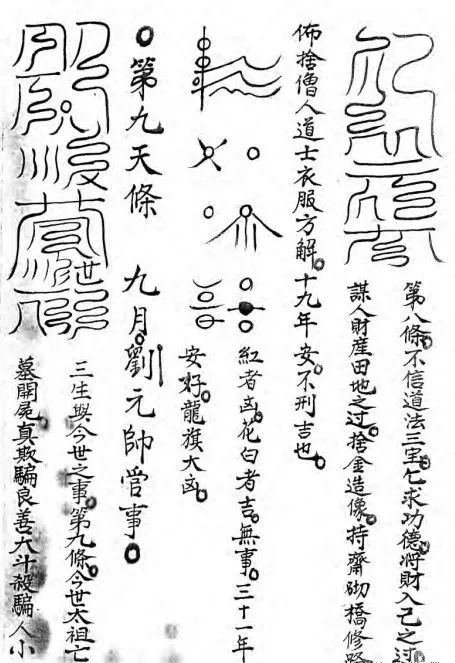 第八條。不信道法三宝。乞求功德。將财入己之过。
謀人財産田地之过。捨金造像。持齋砌橋修路
佈捨僧人道士衣服方解。十九年安。不刑吉也。
紅者凶。花白者吉。無事。三十一年
安好。龍旗大凶。
第九天條 九月。劉元帥管事。
三生與今世之事。第九條。今世太祖亡
墓開屍真欺騙良善大斗殺騙人小